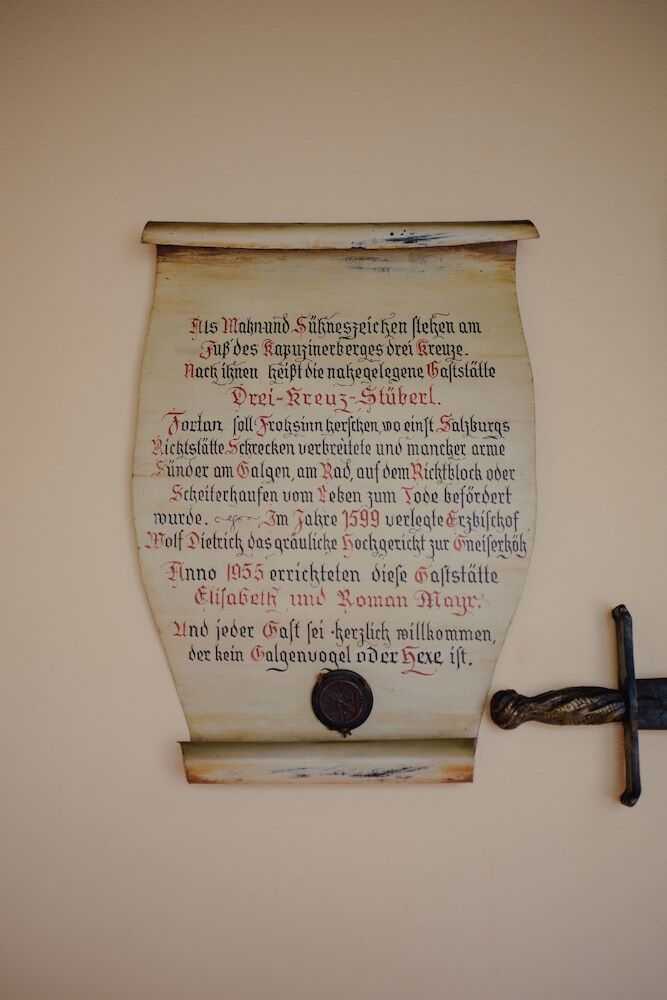 Als Mahn und Sühneszeichen stehen am
Fuß des Kapuzinerberges drei Kreuze.
Nach ihnen heißt die nahegelegene Gaststätte
Drei-Kreuz-Stüberl.
Fortan soll Frohsinn herschen, wo einst Salzburgs
Richtstätte Schrecken verbreitete und mancher arme
Sünder am Galgen, am Rad, auf dem Richtblock oder
Scheiterhaufen vom Leben zum Tode befördert
wurde. Im Jahre 1599 verlegte Erzbischof
Wolf Dietrich das gräuliche Hochgericht zur Gneiserhöh
Anno 1955 errichteten diese Gaststätte
Elisabeth und Roman Mayr.
Und jeder Gast sei herzlich willkommen,
der kein Galgenvogel oder Hexe ist.